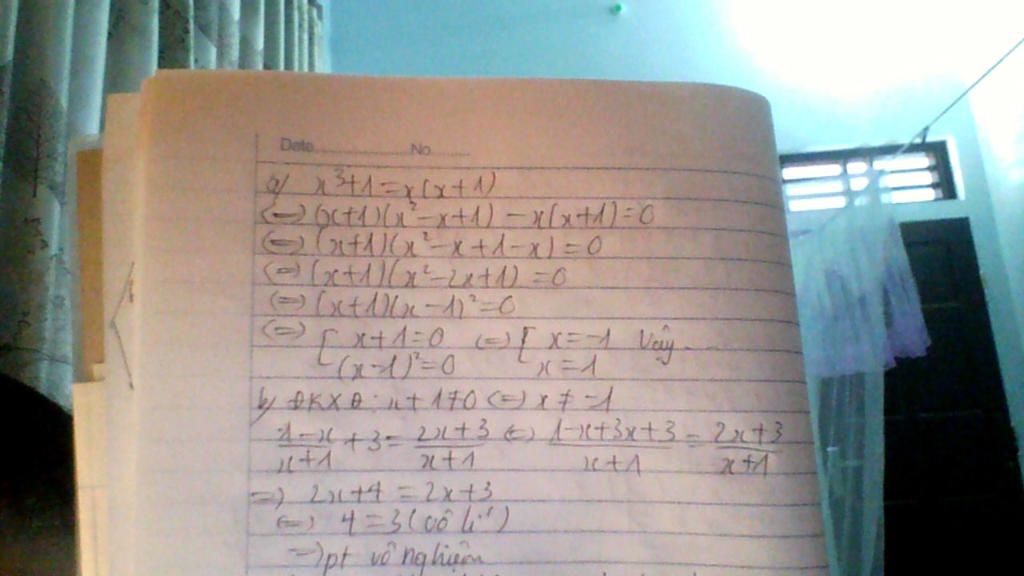 Date............No.........
a) x³+1=x(x+1)
(=) (x+1)(x²-x+1) - x(x+1)=0
(=) (x+1)(x²-x+1-x)=0
(=) (x+1)(x²-2x+1)=0
(=) (x+1)(x-1)²=0
(=) [ x+1=0 (=) [ x=-1 Vậy...
(x-1)²=0 x=1
b) ĐKXĐ: x+1≠0 (=) x≠-1
(1-x)/(x+1) + 3 = (2x+3)/(x+1) (=) (1-x+3x+3)/(x+1) = (2x+3)/(x+1)
=) 2x+4=2x+3
(=) 4=3 (vô lí)
=) pt vô nghiệm